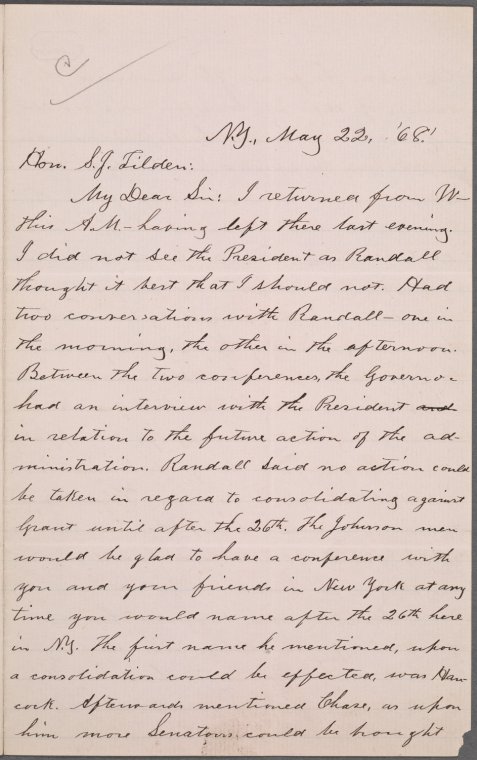 N.Y., May 22, '68.
Hon. S.J. Tilden:
My Dear Sir: I returned from W—
this A.M.—having left there last evening.
I did not see the President as Randall
thought it best that I should not. Had
two conversations with Randall—one in
the morning, the other in the afternoon.
Between the two conferences, the Governor
had an interview with the President and
in relation to the future action of the ad-
ministration. Randall said no action could
be taken in regard to consolidating against
Grant until after the 26th. The Johnson men
would be glad to have a conference with
you and your friends in New York at any
time you would name after the 26th here
in N.Y. The first name he mentioned, upon
a consolidation could be effected, was Han-
cock. Afterwards mentioned Chase, as upon
him more Senators could be brought